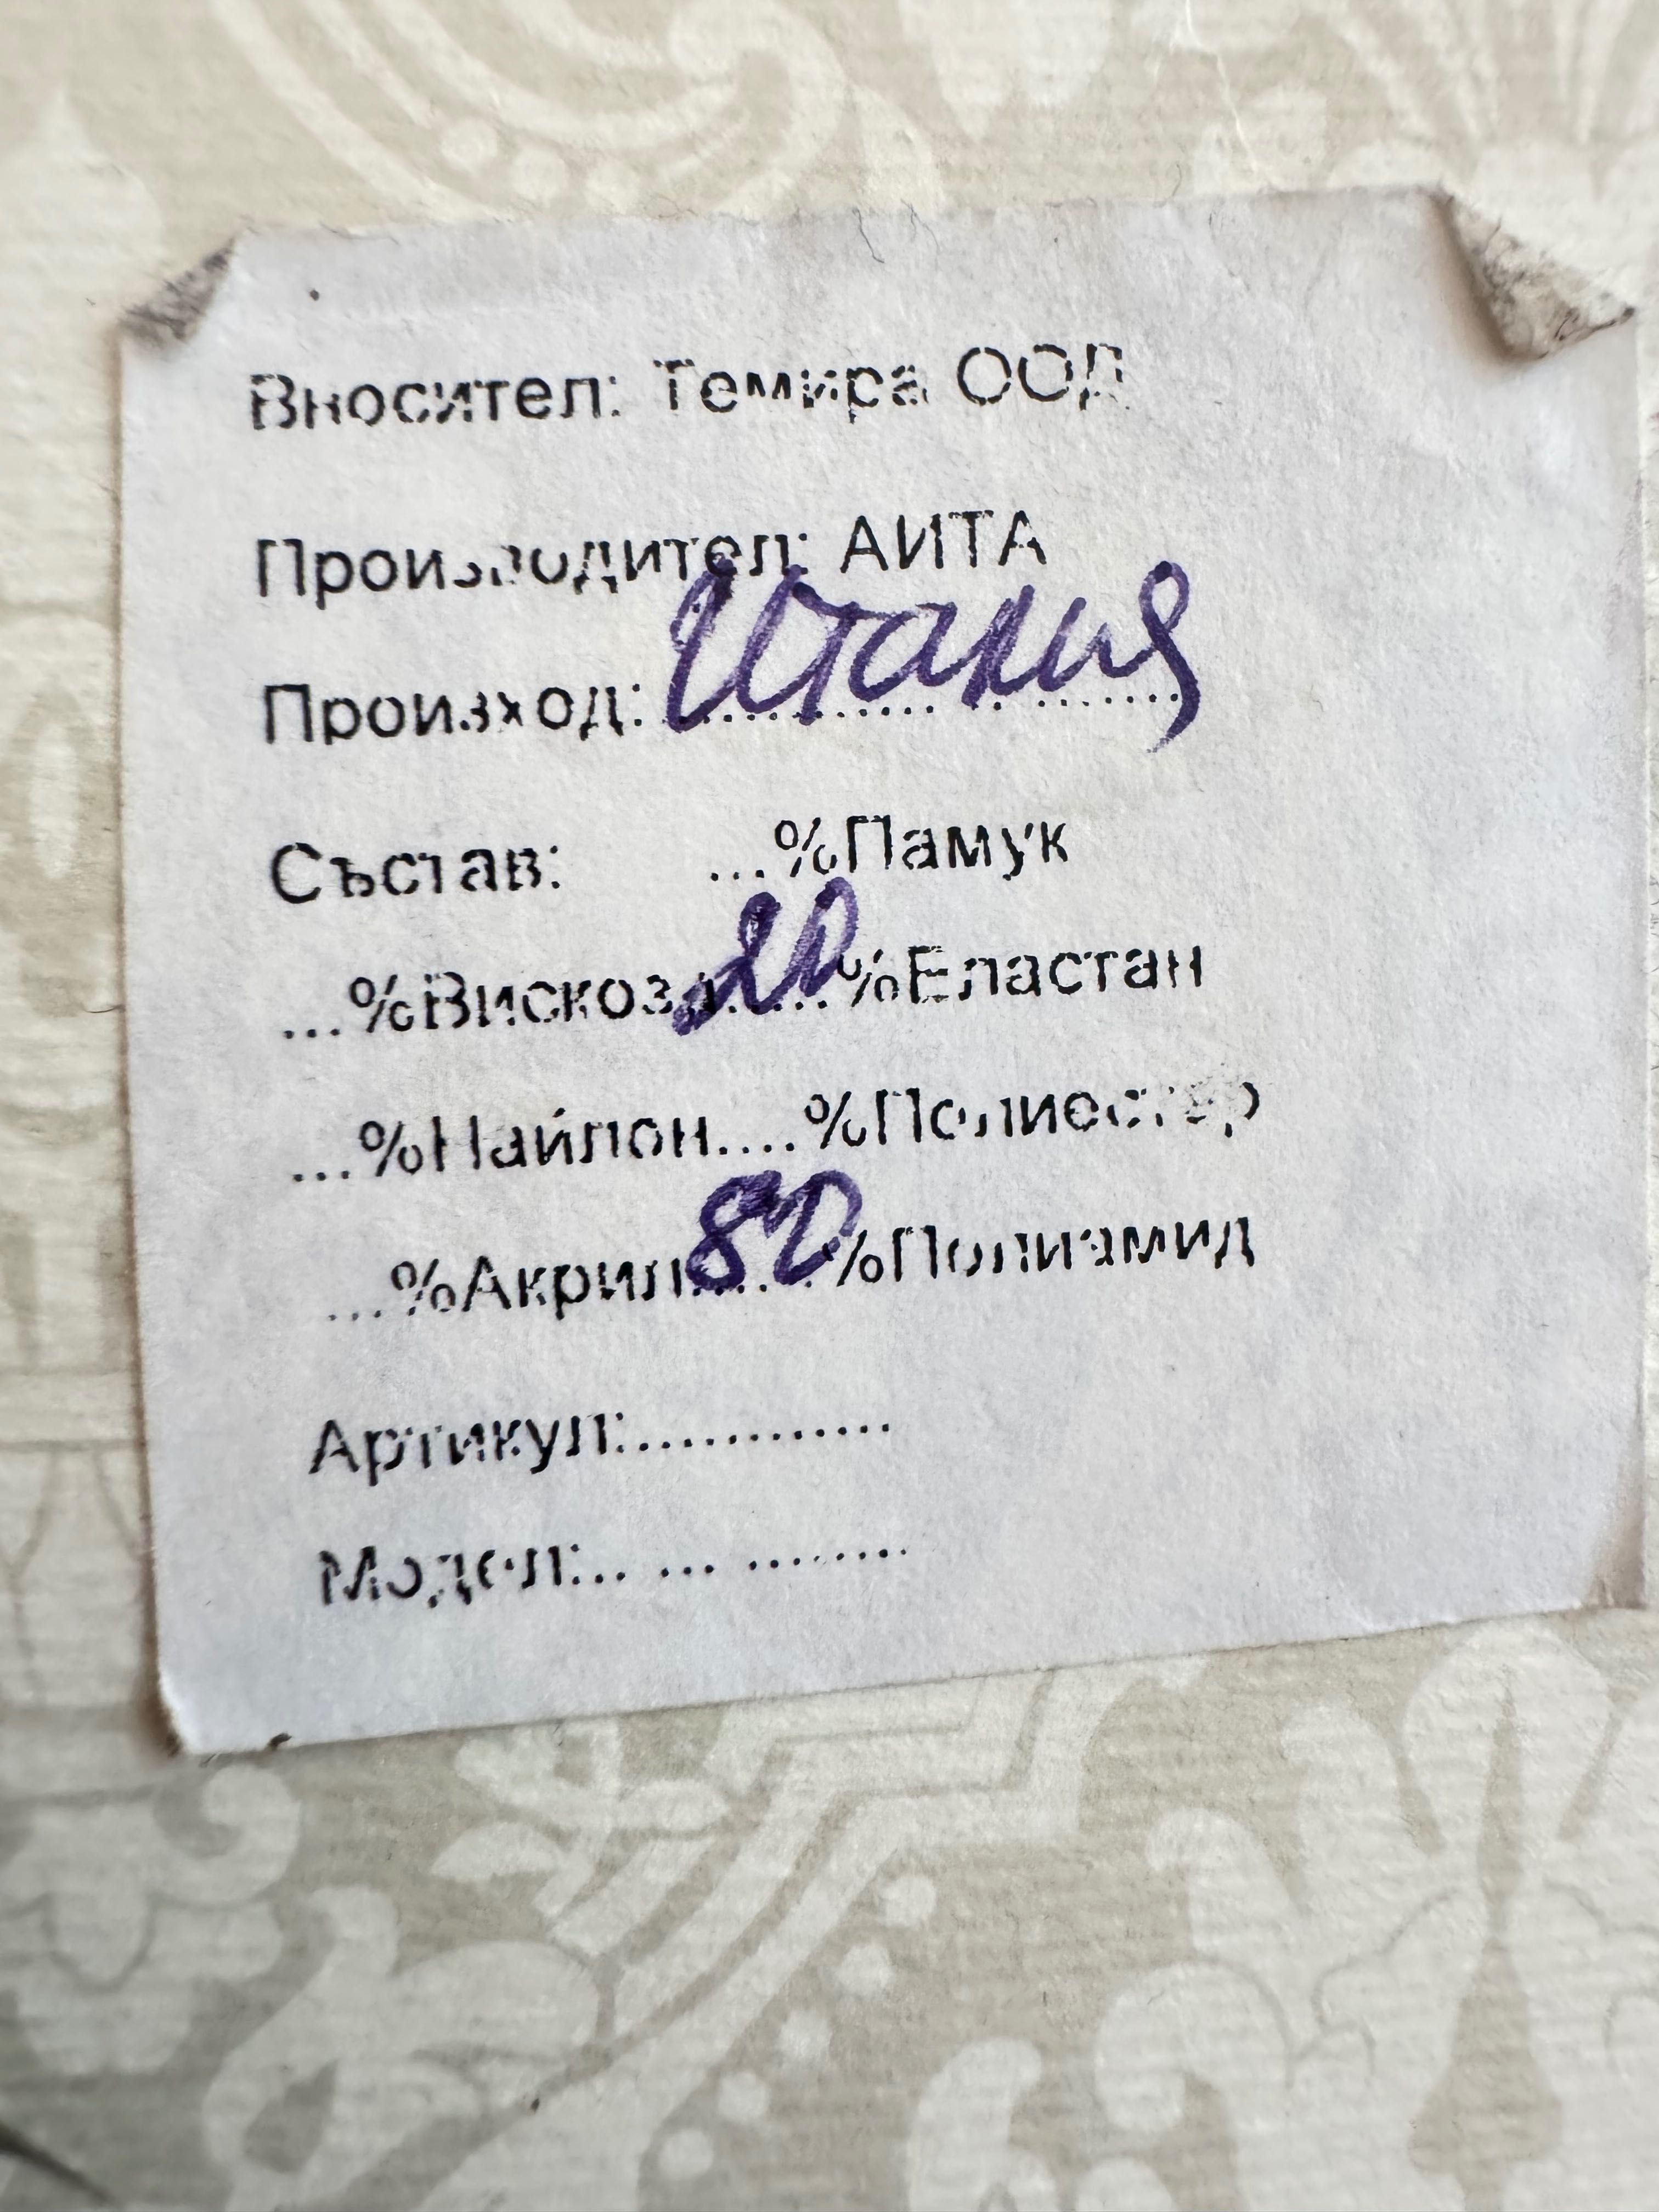 Вносител: Темира ООД
Производител: АИТА
Произход: Италия
Състав: ...%Памук
...%Вискоза 20 %Еластан
...%Найлон....%Полиестер
...%Акрил 80 %Полиамид
Артикул:.............
Модел:... ... ........